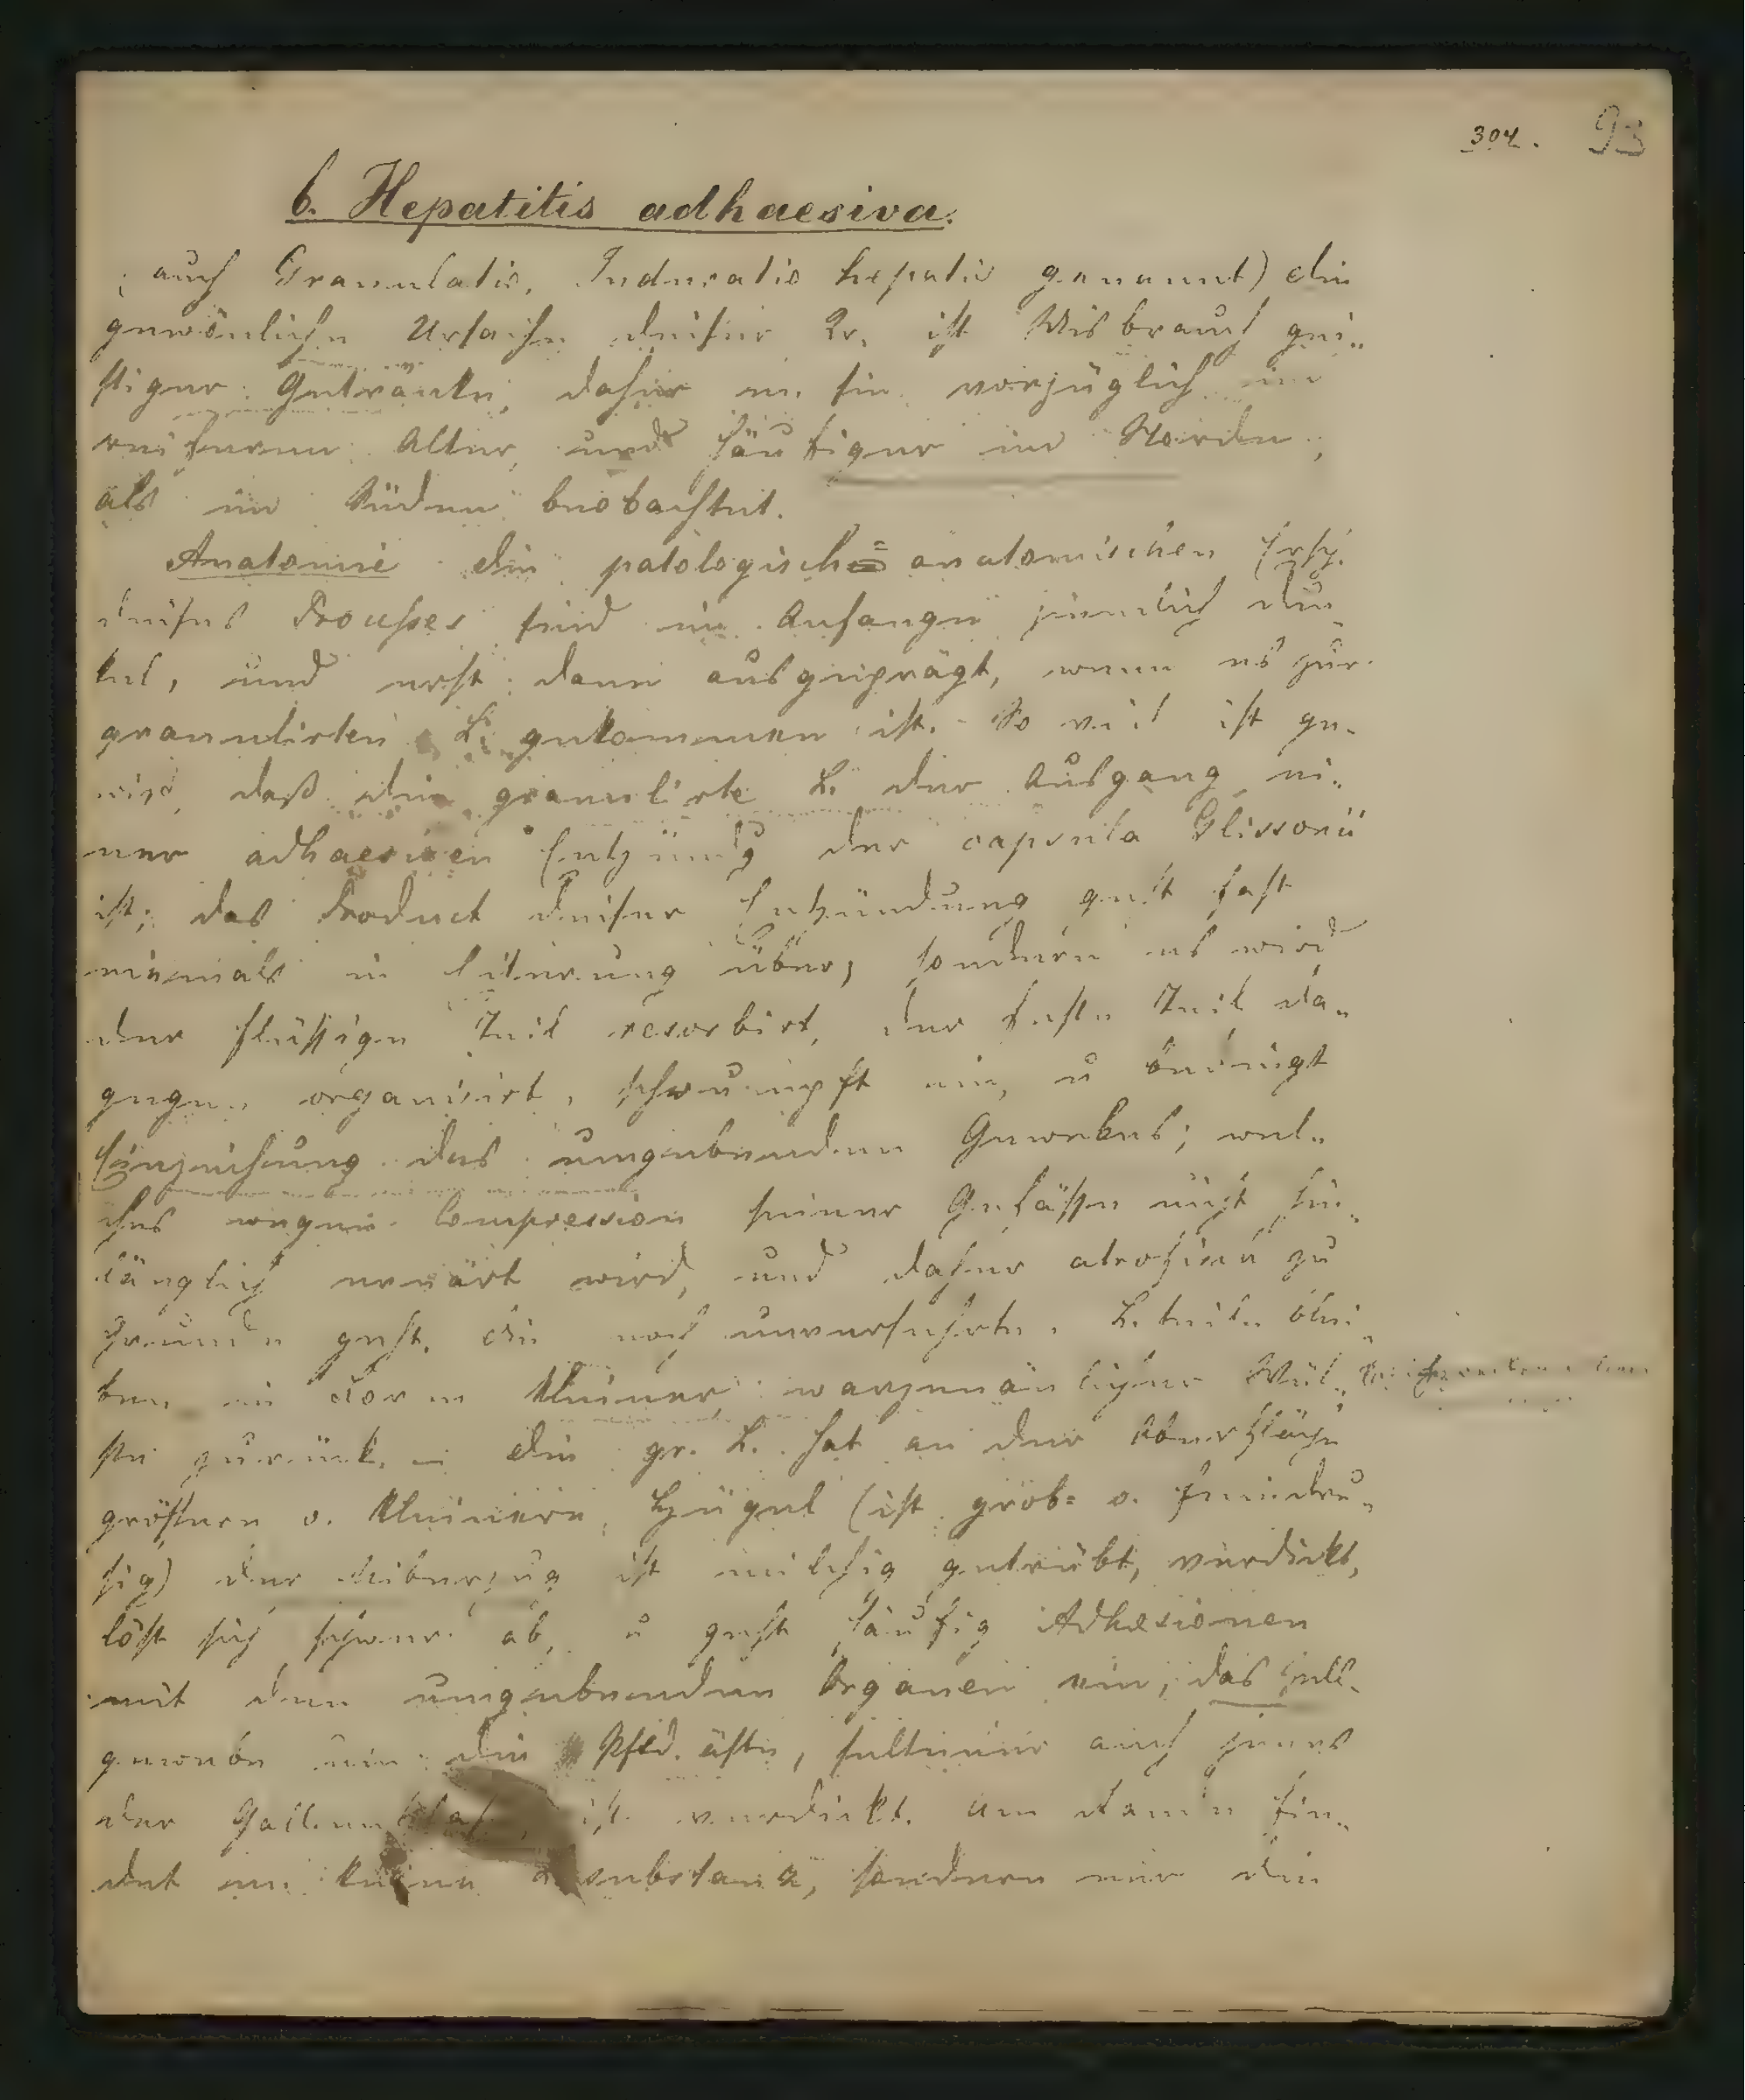 304. 93
6. Hepatitis adhaesiva.
(auch Granulatio, Induratio hepatis genannt) die
gewönlichen Ursachen dieser Kr. ist Misbrauch gei„
stiger Getränke, daher m. sie vorzüglich im
reiferem Alter, und häufiger im Norden,
als im Süden beobachtet.
Anatomie die patologisch= anatomischen Ersch.
dieses Processes sind im Anfange ziemlich dun„
kel, und erst dann ausgeprägt, wenn es zur
granulirten L. gekommen ist. So viel ist ge„
wis, daß die granulirte L. der Ausgang ei„
ner adhaesiven Entzündg der capsula Glissonii
ist; das Product dieser Entzündung geht fast
niemals in Eiterung über, sondern es wird
der flüssige Teil resorbirt, der feste Teil da„
gegen organisirt, schrumpft ein, u
Einziehung des umgebenden Gewebes; wel„
ches wegen Compression seiner Gefässe nicht hin„
länglich ernärt wird, und daher atrofisch zu
Grunde geht. Die noch unversehrten L. teile blei„
ben in Form kleiner warzenänlicher Wül„
ste zurück. – die gr. L. hat an der Oberfläche
grössere o. kleinere Hügel (ist grob= o. feindru„
sig) der Uiberzug ist milchig getrübt, verdickt,
löst sich schwer ab, u geht häufig Adhäsionen
mit den umgebenden Organen ein; das Zell„
gewebe um die Pfd. äste, seltener auch jenes
der Gallenblase, ist verdickt.
det m. keine substanz, sondern nur die